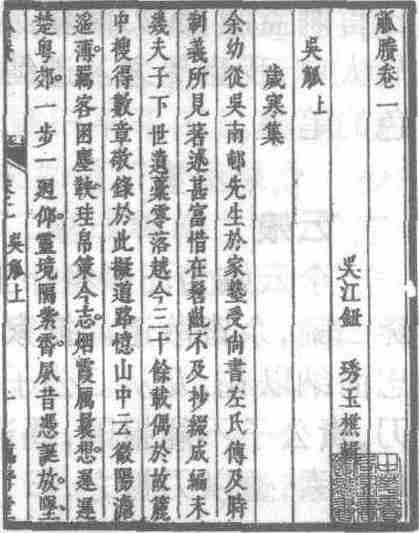 觚賸卷一
吳江鈕　琇玉樵輯
吳觚上
歲寒集
余幼從吳南邨先生於家塾受尚書左氏傳及時
制義所見著述甚富惜在髫齓不及抄綴成編未
幾夫子下世遺稾零落越今三十餘載偶於故簏
中搜得數章敬錄於此擬道路憶山中云微陽澹
遥薄。羈客困塵鞅。珪帛策今志。烟霞屬曩想。遲遲
楚粤郊。一步一廻仰。靈境隔紫霄。夙昔憑誕放。墜
吳觚上